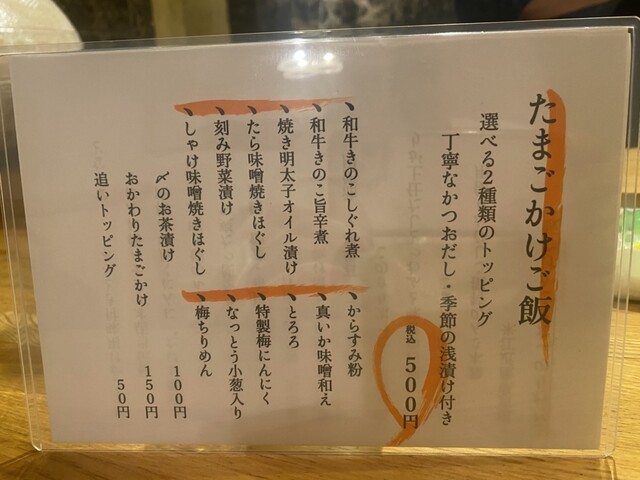 たまごかけご飯
選べる2種類のトッピング
丁寧なかつおだし・季節の浅漬け付き
税込 500円
、和牛きのこしぐれ煮
、和牛きのこ旨辛煮
、焼き明太子オイル漬け
、たら味噌焼きほぐし
、刻み野菜漬け
、しゃけ味噌焼きほぐし
、からすみ粉
、真いか味噌和え
、とろろ
、特製梅にんにく
、なっとう小葱入り
、梅ちりめん
〆のお茶漬け 100円
おかわりたまごかけ 150円
追いトッピング 50円